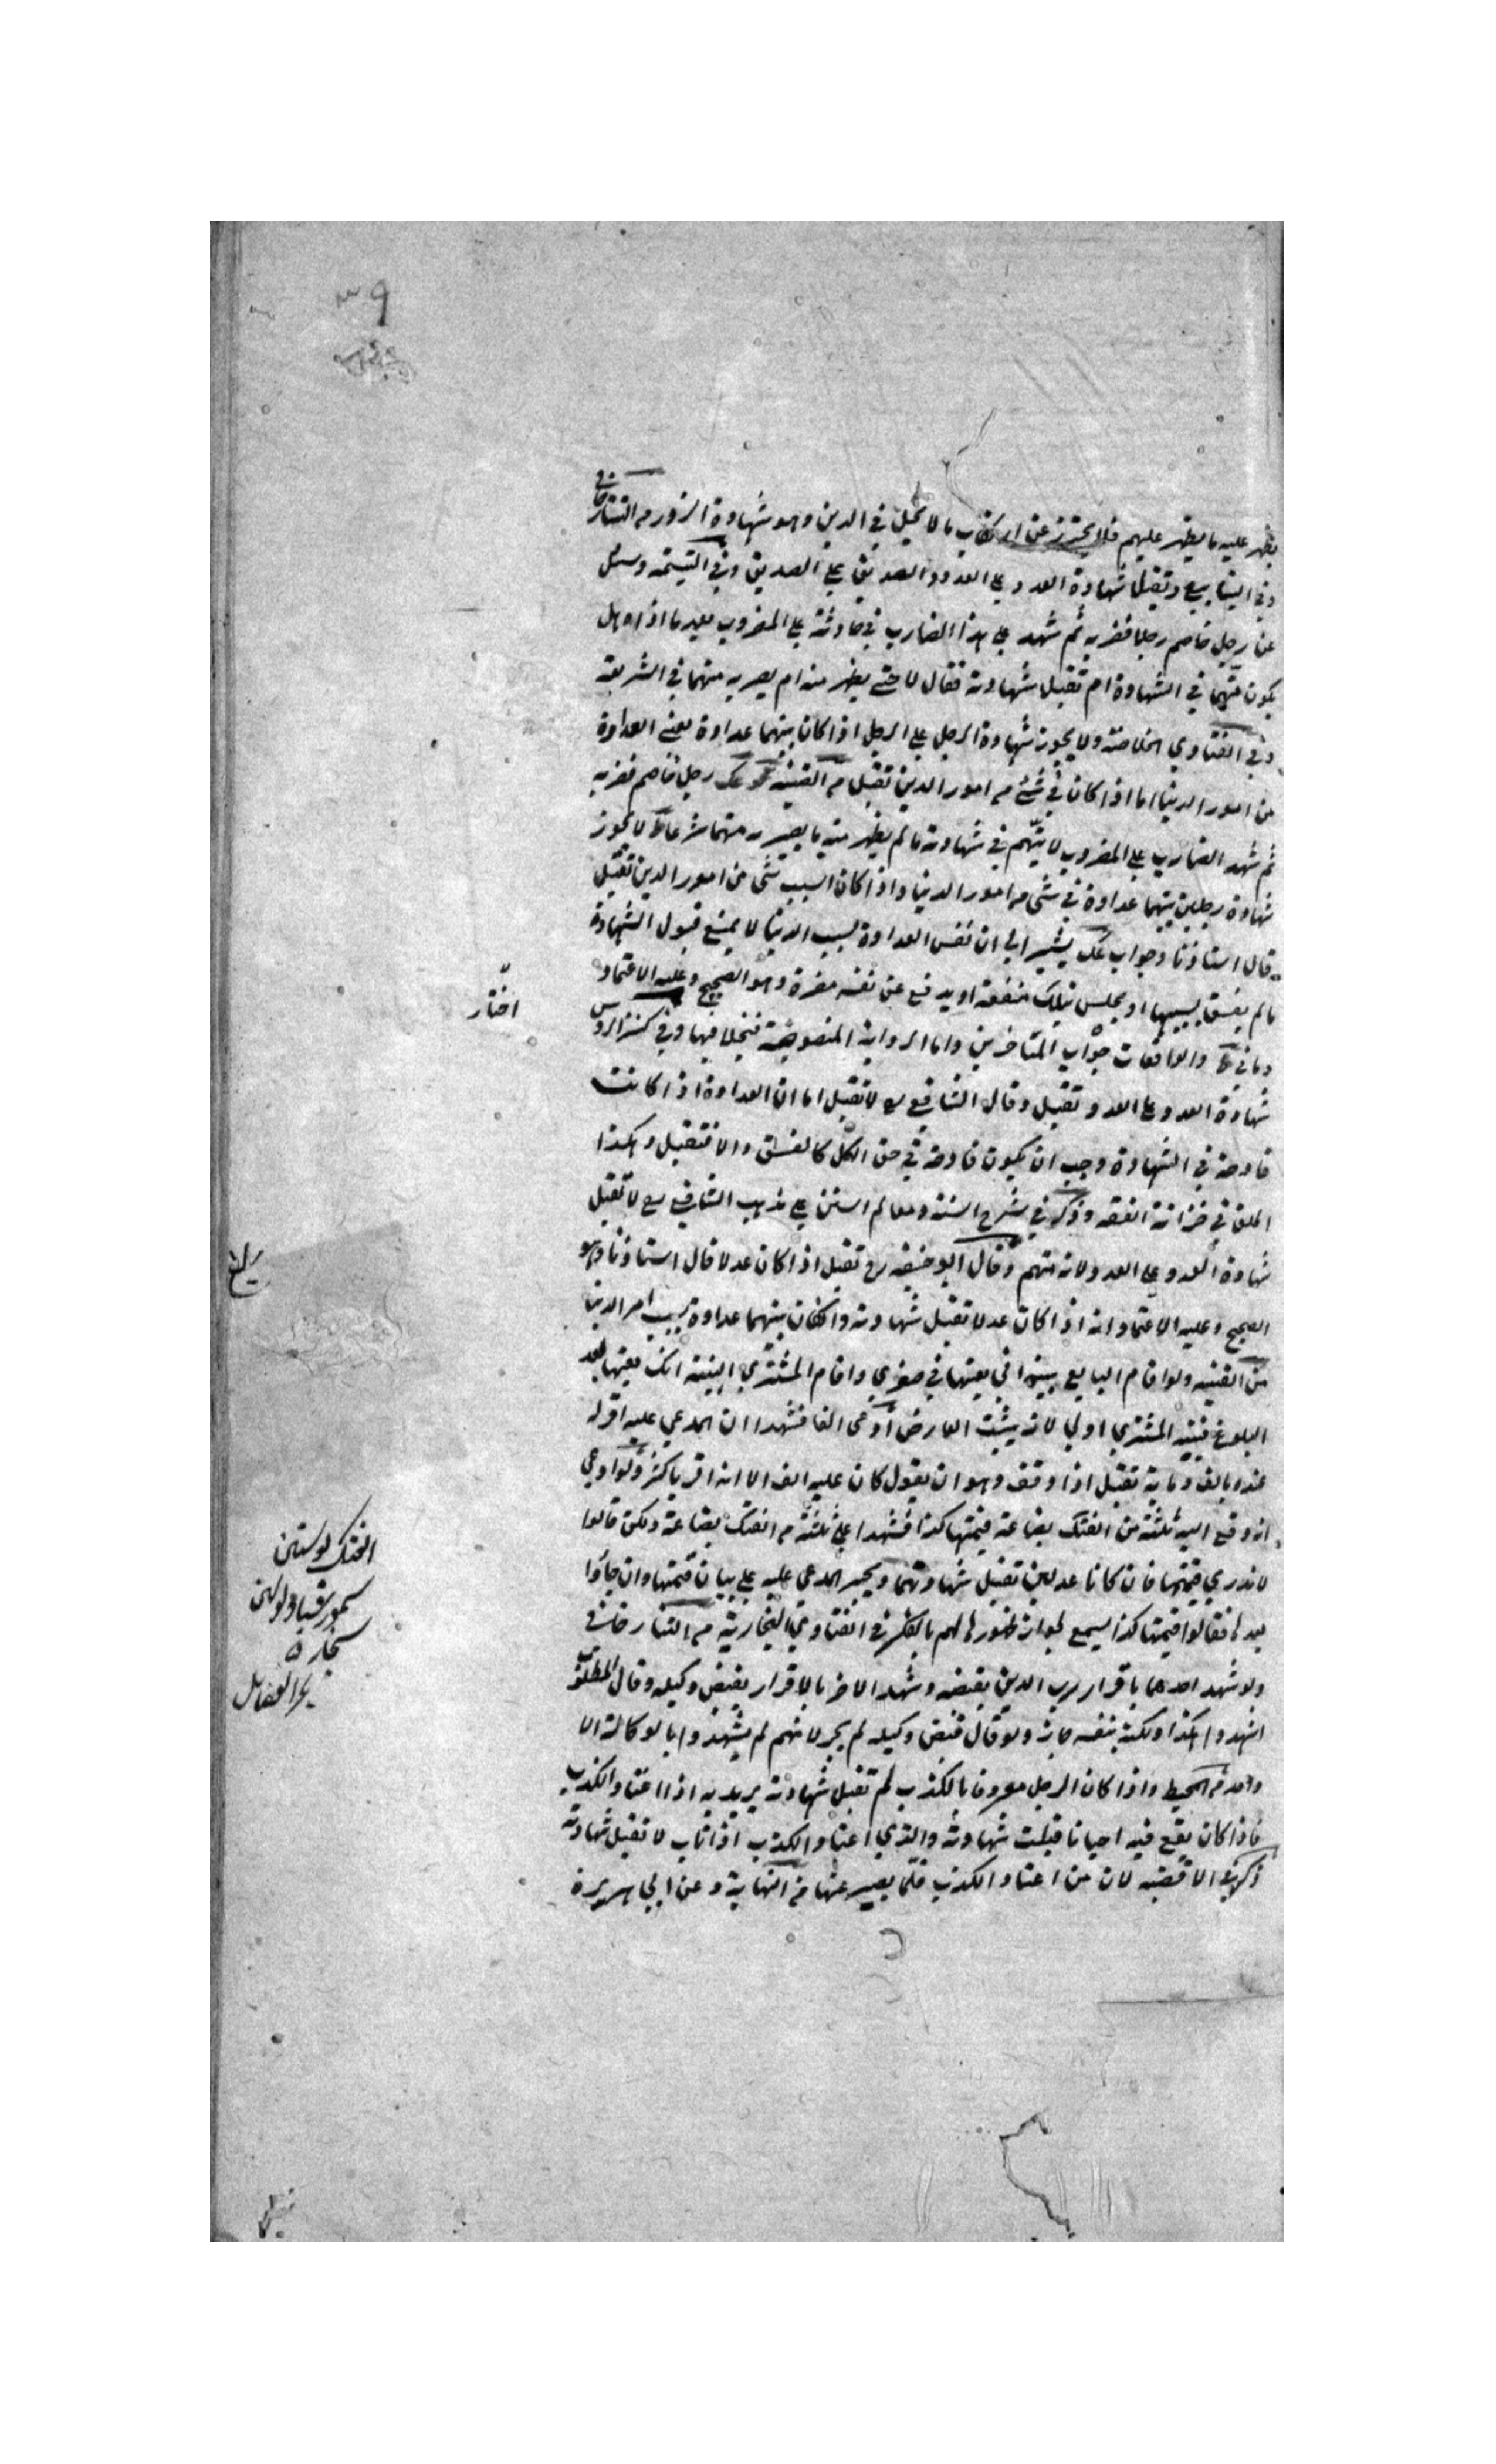 ٣٩
يظهر عليه ما يظهر عليهم فلا يحترز عن ارتكاب ما لا يحل في الدين وهو شهادة الزور من التتارخاني
وفي الينابيع وتقبل شهادة العدو علي العدو والصديق علي الصديق وفي اليتيمة وسئل
عن رجل خاصم رجلا فضربه ثم شهد علي هذا الضارب في حادثة علي المضروب بعد ما اذاه هل
يكون متهما في الشهادة ام تقبل شهادته فقال لا حتي يظهر منه ام يصير به متهما في الشريعة
وفي الفتاوي الخلاصة ولا يجوز شهادة الرجل علي الرجل اذا كان بينهما عداوة يعني العداوة
من امور الدنيا اما اذا كان في شئ من امور الدين تقبل من القنية عك رجل خاصم فضربه
ثم شهد الضارب علي المضروب لا يتهم في شهادته ما لم يظهر منه ما يصير به متهما شرعا ط لا يجوز
شهادة رجلين بينهما عداوة في شئ من امور الدنيا واذا كان السبب شئ من امور الدين تقبل
قال استاذنا وجواب عك يشير الي ان نفس العداوة بسبب الدنيا لا يمنع قبول الشهادة
ما لم يفسق بسببها او يجلب بتلك منفعة او يدفع عن نفسه مضرة وهو الصحيح وعليه الاعتماد
وما في والواقعات جواب المتاخرين واما الرواية المنصوصة فبخلافها وفي كنز الروس
اختار
شهادة العدو علي العدو تقبل وقال الشافعي رح لا تقبل اما ان العداوة اذا كانت
قادحة في الشهادة وجب ان يكون قادحة في حق الكل كالفسق والا فتقبل وهكذا
اطلق في خزانة الفقه وذكر في شرح السنة ومعالم السنن علي مذهب الشافعي رح لا تقبل
شهادة العدو علي العدو لانه متهم وقال ابو حنيفه رح تقبل اذا كان عدلا قال استاذنا وهو
الصحيح وعليه الاعتماد انه اذا كان عدلا تقبل شهادته وان كان بينهما عداوة بسبب امر الدنيا
من القنية ولو اقام البايع بينة اني بعتها في صغري واقام المشتري البينة انك بعتها بعد
البلوغ فبينة المشتري اولي لانه يثبت العارض ادعي الفا فشهدا ان المدعي عليه اقر له
عنده بالف وماية تقبل اذا وفق وهو ان يقول كان عليه الف الا انه اقر باكثر ولو ادعي
انه دفع اليه ثلثة من الفنك بضاعة قيمتها كذا فشهدا علي ثلثة من الفنك بضاعة ولكن قالوا
لا ندري قيمتها فان كانا عدلين تقبل شهادتهما ويجبر المدعي عليه علي بيان قيمتها وان جاؤا
الفنك پوستين
سنجاره
بحر الفضايل
بعدها فقالوا قيمتها كذا يسمع لجواز ظهورها لهم بالفكر في الفتاوي البخارية من التتارخاني
ولو شهد احدهما باقرار رب الدين بقبضه وشهد الاخر بالاقرار بقبض وكيله وقال المطلوب
اشهدوا هكذا ولكنه بنفسه جاز ولو قال قبض وكيله لم يجز لانهم لم يشهدوا بالوكالة الا
واحد من المحيط واذا كان الرجل معروفا بالكذب لم تقبل شهادته يريد به اذا اعتاد الكذب
فاذا كان يقع فيه احيانا قبلت شهادته والذي اعتاد الكذب اذا تاب لا تقبل شهادته
ذكره في الاقضية لان من اعتاد الكذب قلما يصبر عنها من النهاية وعن ابي هريرة